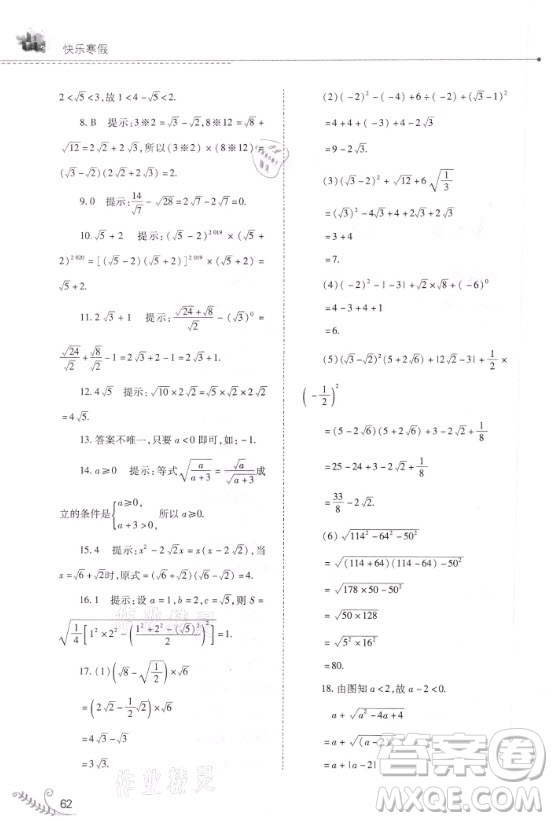 快乐寒假
2<√5<3,故 1<4-√5<2.
8. B 提示:3※2=√3-√2,8※12=√8+
√12=2√2+2√3,所以(3※2)×(8※12)=
(√3-√2)(2√2+2√3)=2.
9. 0 提示:14/√7-√28=2√7-2√7=0.
10. √5+2 提示:(√5-2)^2019×(√5+
2)^2020=[(√5-2)(√5+2)]^2019×(√5+2)=
√5+2.
11. 2√3+1 提示:(√24+√8)/√2-(√3)^0=
√24/√2+√8/√2-1=2√3+2-1=2√3+1.
12. 4√5 提示:√10×2√2=√5×√2×2√2
=4√5.
13. 答案不唯一,只要 a<0 即可,如:-1.
14. a≥0 提示:等式√(a/(a+3))=√a/√(a+3)成
立的条件是{a≥0, a+3>0. 所以 a≥0.
15. 4 提示:x²-2√2x=x(x-2√2),当
x=√6+√2时,原式=(√6+√2)(√6-√2)=4.
16. 1 提示:设 a=1,b=2,c=√5,则 S=
√(1/4[1²×2²-((1²+2²-(√5)²)/2)²])=1.
17. (1)(√8-√(1/2))×√6
=(2√2-√2/2)×√6
=4√3-√3
=3√3
(2)(-2)²-(2-√6)... 
=4+4-2√3
=9-2√3.
(3)(√3-2)²+√12+6√(1/3)
=(√3)²-4√3+4+2√3+2√3
=3+4
=7.
(4)(-2)²-|-3|+√2×√8+(-6)^0
=4-3+4+1
=6.
(5)(√3-√2)²(5+2√6)+|2√2-3|+1/2×
(-1/2)²
=(5-2√6)(5+2√6)+3-2√2+1/8
=25-24+3-2√2+1/8
=33/8-2√2.
(6)√(114²-64²-50²)
=√((114+64)(114-64)-50²)
=√(178×50-50²)
=√(50×128)
=√(5²×16²)
=80.
18. 由图知 a<2,故 a-2<0.
a+√(a²-4a+4)
=a+√((a-2)²)
=a+|a-2|
62
作业精灵
答案圈
MXQE.COM